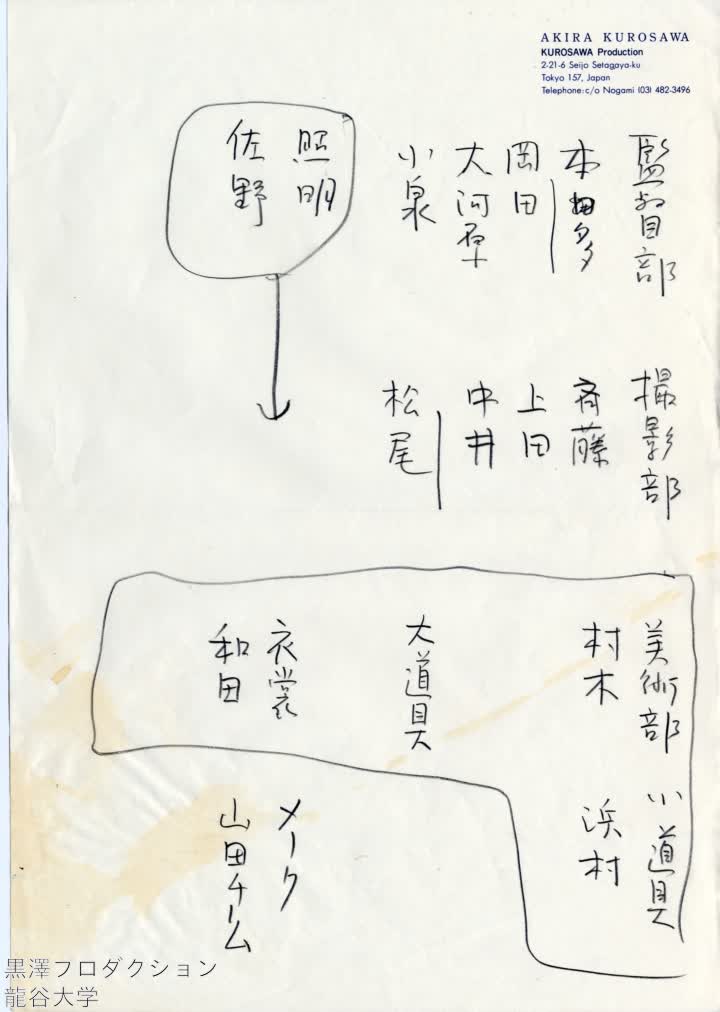 AKIRA KUROSAWA
KUROSAWA Production
2-21-6 Seijo Setagaya-ku
Tokyo 157, Japan
Telephone: c/o Nogami (03) 482-3496
監督部
本多
岡田
大河原
小泉
照明
佐野
撮影部
斉藤
上田
中井
松尾
美術部
村木
大道具
衣裳
和田
小道具
浜村
メーク
山田チーム
黒澤プロダクション
龍谷大学